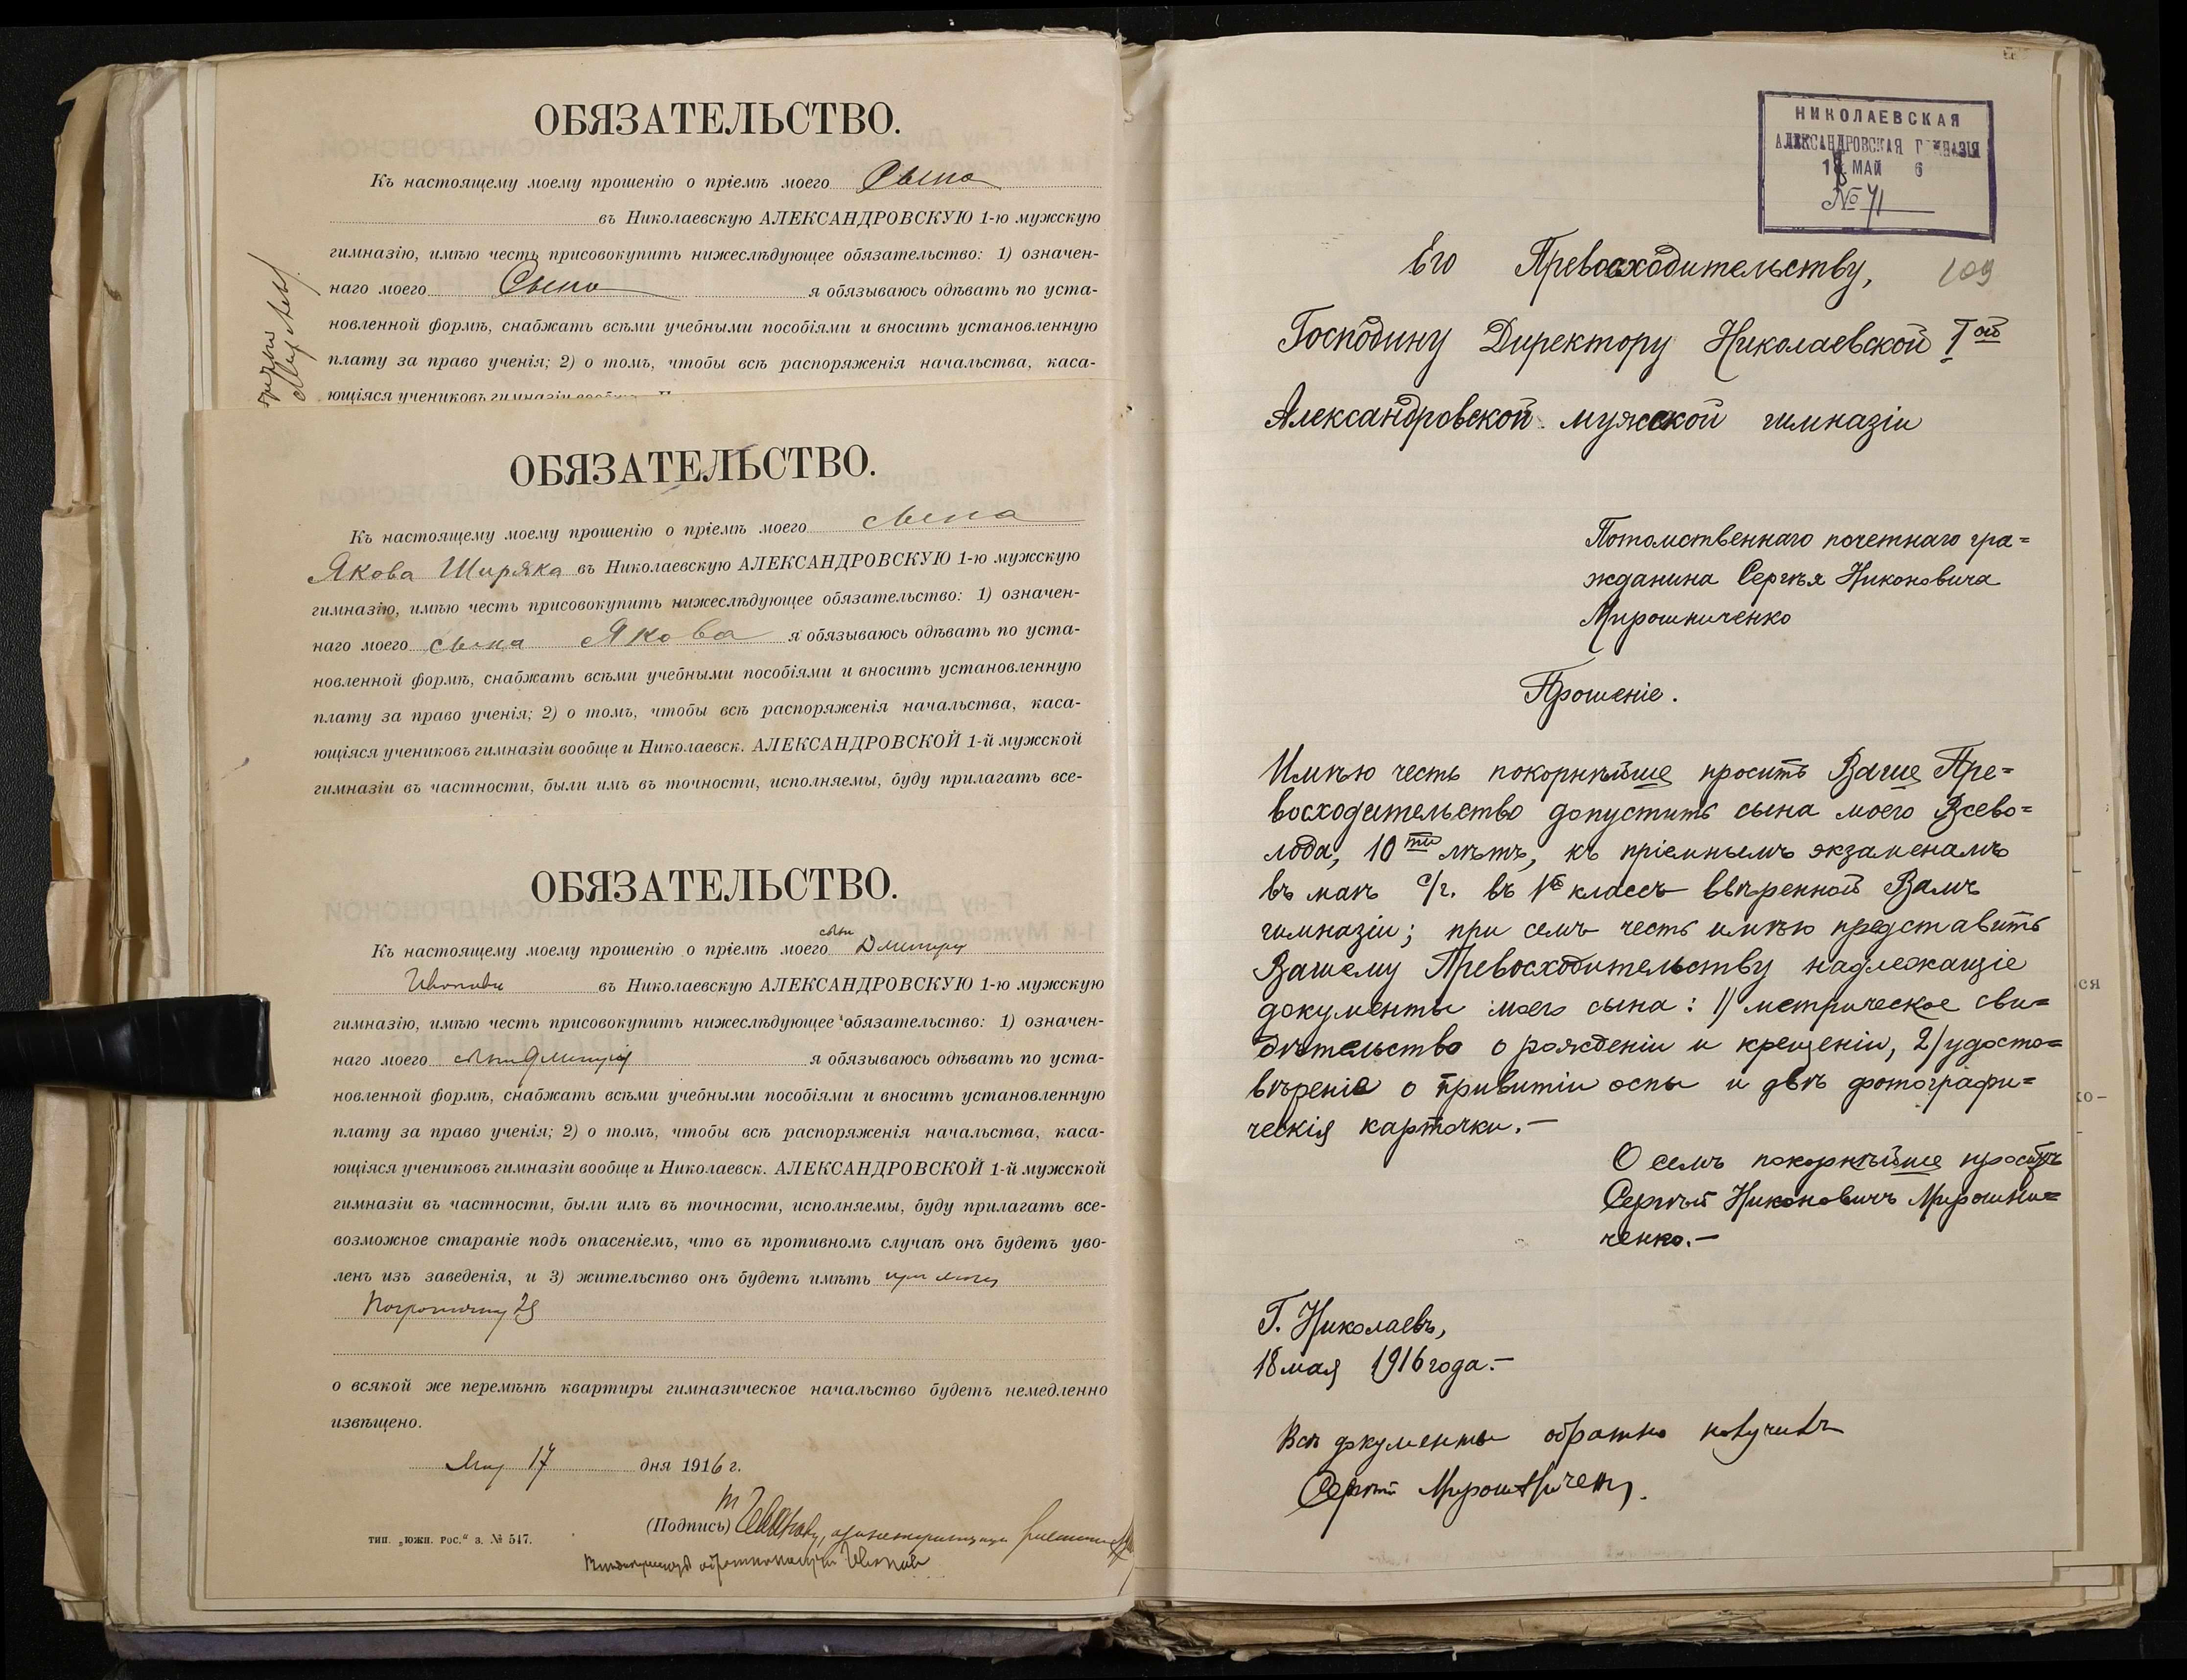 ОБЯЗАТЕЛЬСТВО.
Къ настоящему моему прошенію о пріемѣ моего Сына
въ Николаевскую АЛЕКСАНДРОВСКУЮ 1-ю мужскую
гимназію, имѣю честь присовокупить нижеслѣдующее обязательство: 1) означен-
наго моего Сына я обязываюсь одѣвать по уста-
новленной формѣ, снабжать всѣми учебными пособіями и вносить установленную
плату за право ученія; 2) о томъ, чтобы всѣ распоряженія начальства, каса-
ющіяся учениковъ гимназіи вообще
ОБЯЗАТЕЛЬСТВО.
Къ настоящему моему прошенію о пріемѣ моего сына
Якова Ширяка въ Николаевскую АЛЕКСАНДРОВСКУЮ 1-ю мужскую
гимназію, имѣю честь присовокупить нижеслѣдующее обязательство: 1) означен-
наго моего сына Якова я обязываюсь одѣвать по уста-
новленной формѣ, снабжать всѣми учебными пособіями и вносить установленную
плату за право ученія; 2) о томъ, чтобы всѣ распоряженія начальства, каса-
ющіяся учениковъ гимназіи вообще и Николаевск. АЛЕКСАНДРОВСКОЙ 1-й мужской
гимназіи въ частности, были имъ въ точности, исполняемы, буду прилагать все-
ОБЯЗАТЕЛЬСТВО.
Къ настоящему моему прошенію о пріемѣ моего
въ Николаевскую АЛЕКСАНДРОВСКУЮ 1-ю мужскую
гимназію, имѣю честь присовокупить нижеслѣдующее обязательство: 1) означен-
наго моего я обязываюсь одѣвать по уста-
новленной формѣ, снабжать всѣми учебными пособіями и вносить установленную
плату за право ученія; 2) о томъ, чтобы всѣ распоряженія начальства, каса-
ющіяся учениковъ гимназіи вообще и Николаевск. АЛЕКСАНДРОВСКОЙ 1-й мужской
гимназіи въ частности, были имъ въ точности, исполняемы, буду прилагать все-
возможное стараніе подъ опасеніемъ, что въ противномъ случаѣ онъ будетъ уво-
ленъ изъ заведенія, и 3) жительство онъ будетъ имѣть при мнѣ
о всякой же перемѣнѣ квартиры гимназическое начальство будетъ немедленно
извѣщено.
Мая 17 дня 1916 г.
(Подпись)
тип. „южн. рос.“ з. № 547.
НИКОЛАЕВСКАЯ
АЛЕКСАНДРОВСКАЯ ГИМНАЗІЯ
18 МАЙ 6
№ 71
109
Его Превосходительству,
Господину Директору Николаевской 1ой
Александровской мужской гимназіи
Потомственнаго почетнаго гра=
жданина Сергѣя Никоновича
Мирошниченко
Прошеніе.
Имѣю честь покорнѣйше просить Ваше Пре=
восходительство допустить сына моего Всево=
лода, 10ти лѣтъ, къ пріемнымъ экзаменамъ
въ маѣ с/г. въ 1й классъ ввѣренной Вамъ
гимназіи; при семъ честь имѣю представить
Вашему Превосходительству надлежащіе
документы моего сына: 1) метрическое сви=
дѣтельство о рожденіи и крещеніи, 2) удосто=
вѣреніе о привитіи оспы и двѣ фотографи=
ческія карточки.—
О семъ покорнѣйше проситъ
Сергѣй Никоновичъ Мирошни=
ченко.—
Г. Николаевъ,
18 мая 1916 года.—
Всѣ документы обратно получилъ
Сергѣй Мирошниченко.